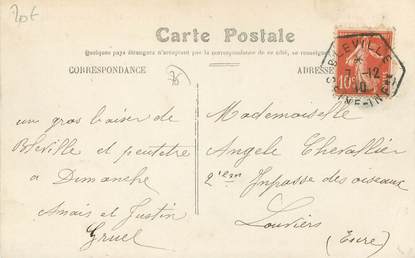 20€
Carte Postale
Quelques pays étrangers n'acceptent pas la correspondance de ce côté, se renseigner
CORRESPONDANCE
ADRESSE
BLEVILLE
12
10
SEINE-INF
10c
un gros baiser de
Bleville et peutetre
a Dimanche
Anais et Justin
Gruel
Mademoiselle
Angele Chevallier
Impasse des oiseaux
Louviers
(Eure)